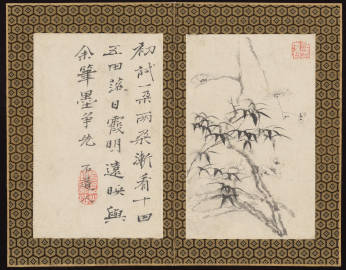 初試一朵兩朵漸看十四
五田落日霞明遠映與
余筆墨爭先
石濤